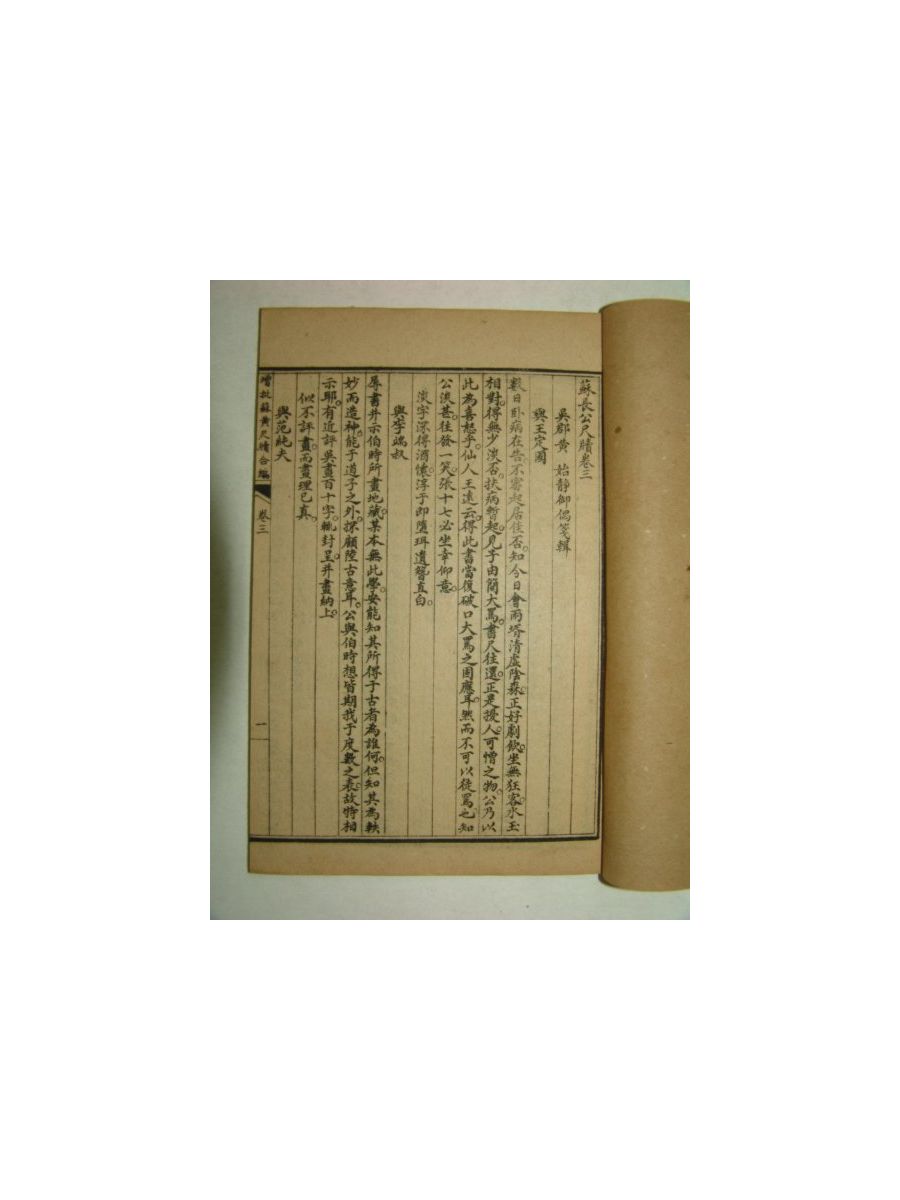 蘇長公尺牘卷三
吳郡黃 始靜御偶箋輯
與王定國
數日卧病在告不審起居佳否知今日會兩壻清虛陰森正好劇飲坐無狂客冰玉
相對得無少淡否扶病暫起見子由簡大罵書尺往還正是擾人可憎之物公乃以
此為喜怒乎仙人王遠云得此書當復破口大罵之固應耳然而不可以徒罵也知
公淡甚往發一笑張十七必坐幸仰意
淡字深得酒懷淳于即墮珥遺簪直白
與李端叔
辱書并示伯時所畫地藏某本無此學安能知其所得于古者為誰何但知其為軼
妙而造神能于道子之外探顧陸古意耳公與伯時想皆期我于度數之表故特相
示耶有近評吳畫百十字輒封呈并畫納上
似不評畫而畫理已真
與范純夫
增批蘇黃尺牘合編
卷三
一